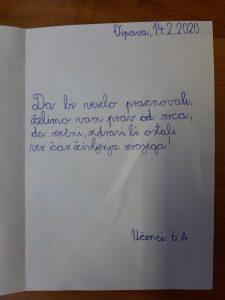 Vipava, 14.2.2020
Da bi veselo praznovali,
želimo vam prav od srca,
da srečni, zdravi bi ostali
ves čas življenja svojega!
Učenci 6.A